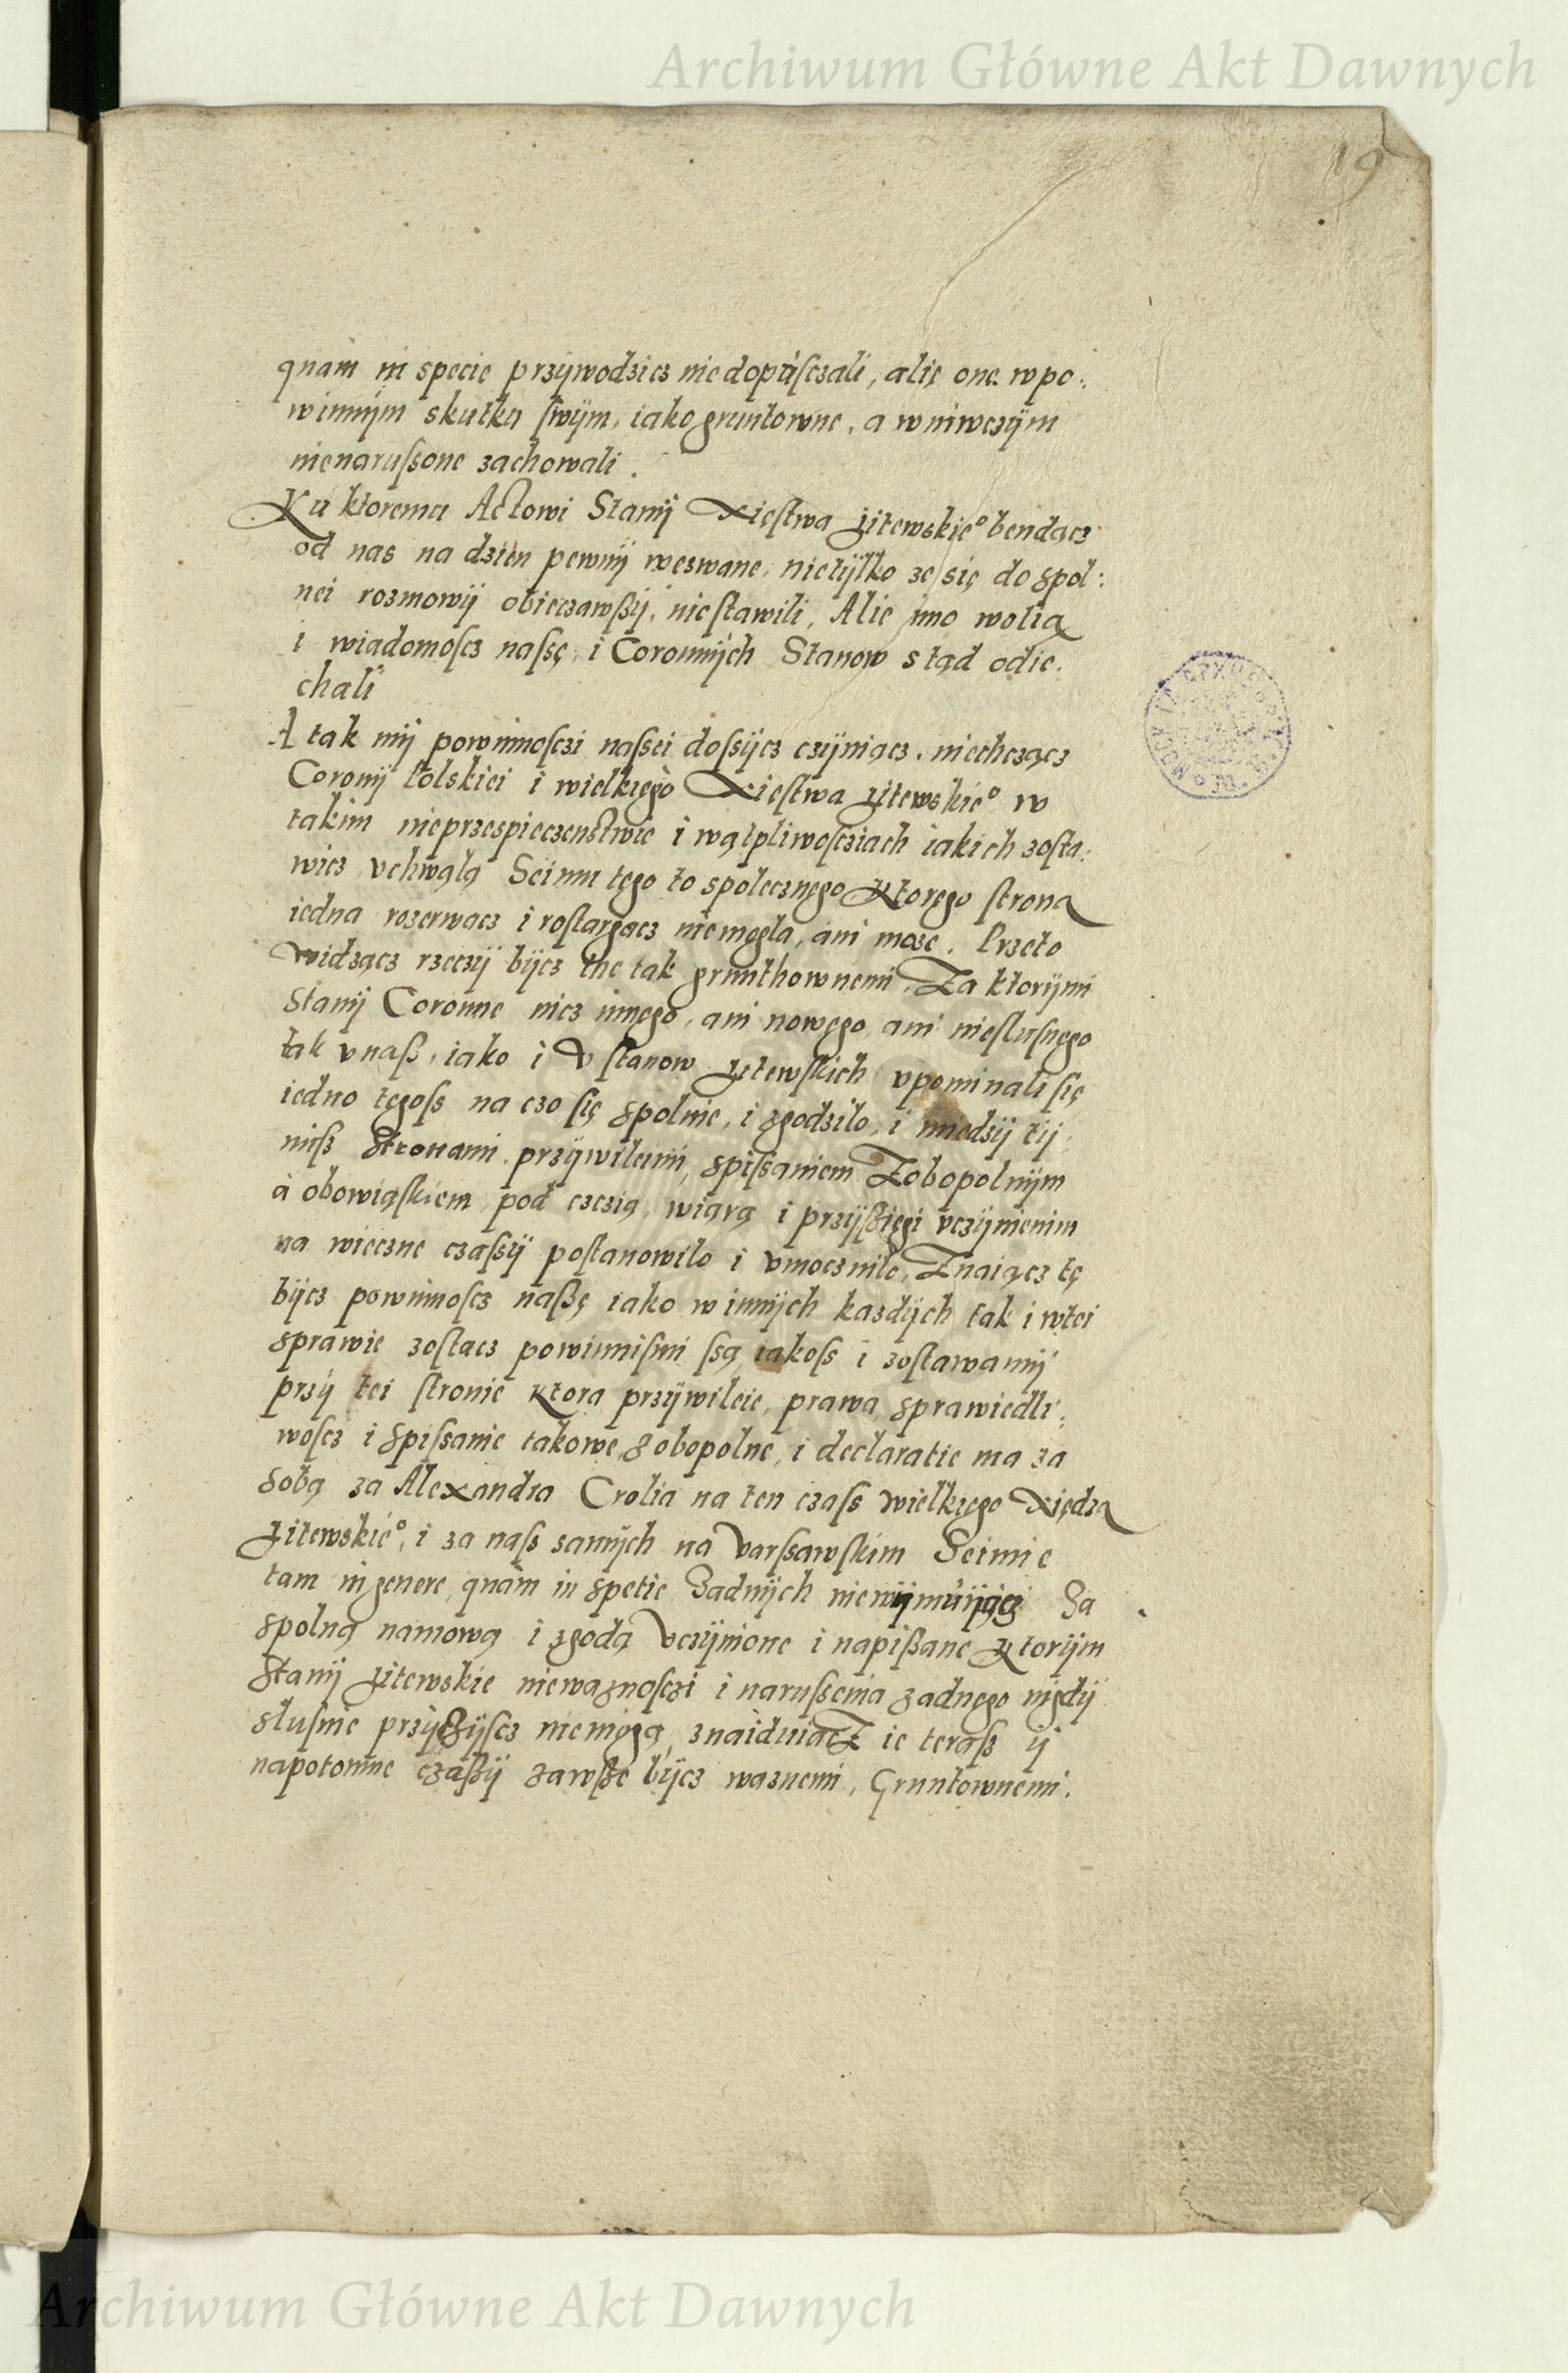 Archiwum Główne Akt Dawnych
19
quàm in specie przÿwodzicz niedopúſczali, alię one wpo:
winnÿm skutku ſwÿm, iako gruntowne, a wniwczÿm
nienaruſsone zachowali.
Ku ktoremu Actowi Stanÿ Xięſtwa Litewskieº bendącz
od nas na dzień pewnÿ wezwane, nietÿlko ze się do spol:
nei rozmowÿ obieczawſzÿ, nieſtawili, Alie imo wolią
i wiadomoſcz naſsę, i Coronnÿch Stanow stąd odie:
chali
A tak mÿ powinnoſczi naſsei doſsÿcz czÿniącz, niechczącz
Coronÿ Polskiei i wielkięgo Xięſtwa Litewskieº w
takim nieprzespieczenſtwie i wątpliwoſcziach iakich zoſta:
wicz vchwałą Seimu tęgo to społecznęgo Ktoręgo ſtrona
iedna rozerwacz i roſtargacz niemogła, ani może. Przeto
widzącz rzeczÿ bÿcz the tak grunthownemi, Za ktorÿmi
Stanÿ Coronne nicz innęgo, ani nowęgo, ani nieſluſnęgo
tak vnaß, iako i V ſtanow Litewſkich vpominali się
iedno tęgoſs na czo ſię spolnie, i zgodziło, i miedzÿ tÿ:
miſs Stronami przÿwileimi, spiſsaniem Zobopolnÿm
à obowiąſkiem, pod czczią, wiarą i przÿſzięgi vczÿnienim
na wieczne czaſsÿ poſtanowiło i vmoczniło, Znaiącz tę
bÿcz powinnoſcz naſzę iako winnÿch kazdÿch tak i wtei
sprawie zoſtacz powinniſmi ſsą, iakoſs i zoſtawamÿ
przÿ tei ſtronie Ktora przÿwileie, prawa, sprawiedli:
woſcz i spiſsanie takowe, zobopolne, i declaratie ma za
sobą za Alexandra Crolia na ten czaſs wielkięgo Xiędza
Litewskieº, i za naſs samÿch na Varſsawſkim Seimie
tam in genere, quàm in spetie Zadnÿch niewÿmúÿiącz Za
spolną namową i zgodą Vczÿnione i napiſzane Ktorÿm
Stanÿ Litewskie niewaznoſczi i naruſsenia zadnęgo nigdÿ
sluſnie przÿczÿſcz niemogą, znaiduiącZ ie teraſs ÿ
napotomne czaſzÿ zawſze bÿcz waznemi, Gruntownemi.
Archiwum Główne Akt Dawnych